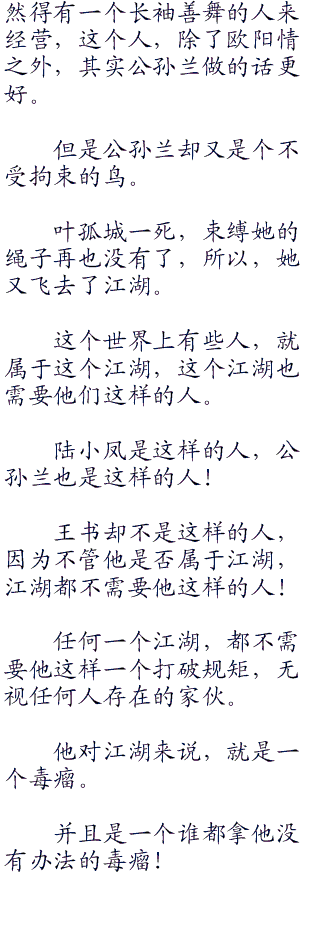 然得有一个长袖善舞的人来
经营，这个人，除了欧阳情
之外，其实公孙兰做的话更
好。
但是公孙兰却又是个不
受拘束的鸟。
叶孤城一死，束缚她的
绳子再也没有了，所以，她
又飞去了江湖。
这个世界上有些人，就
属于这个江湖，这个江湖也
需要他们这样的人。
陆小凤是这样的人，公
孙兰也是这样的人！
王书却不是这样的人，
因为不管他是否属于江湖，
江湖都不需要他这样的人！
任何一个江湖，都不需
要他这样一个打破规矩，无
视任何人存在的家伙。
他对江湖来说，就是一
个毒瘤。
并且是一个谁都拿他没
有办法的毒瘤！